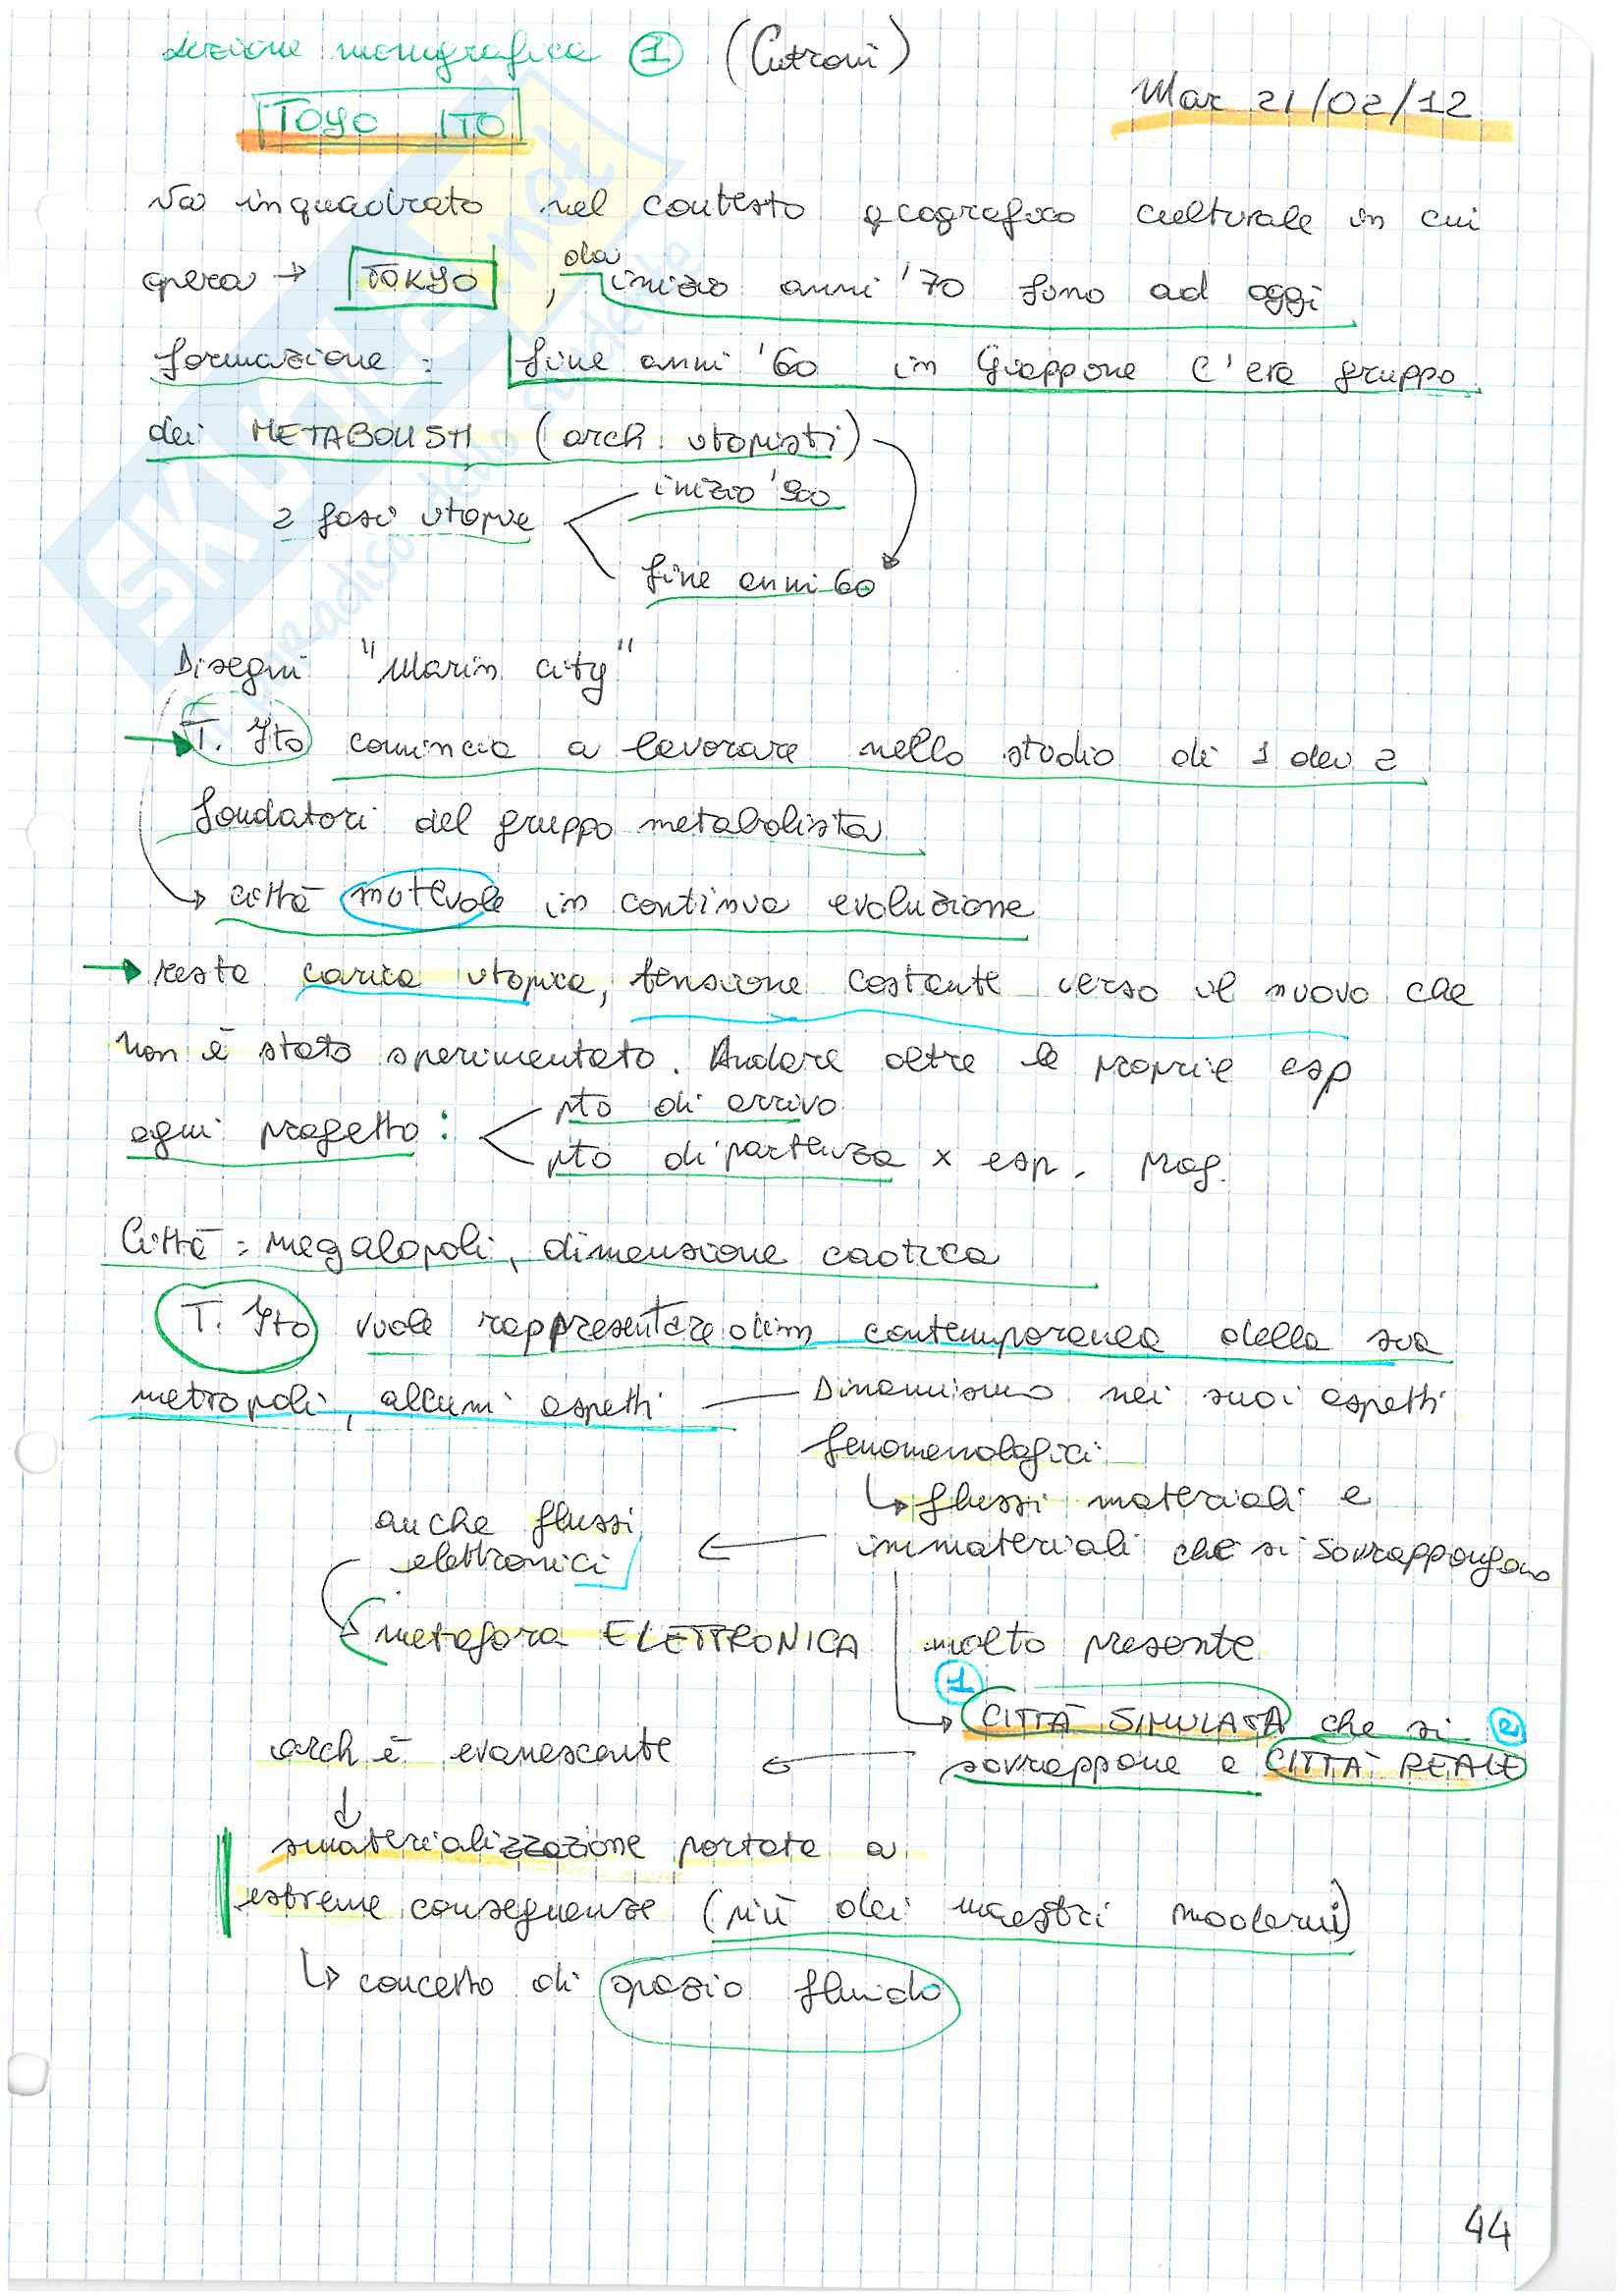 Lezione monografica 1 (Cutroni)
Mar 21/02/12
TOYO ITO
Va inquadrato nel contesto geografico culturale in cui
opera → TOKYO, da inizio anni '70 fino ad oggi
formazione: fine anni '60 in Giappone c'era gruppo
dei METABOLISTI (arch. utopisti)
2 fasi utopie
inizio '900
fine anni 60
Disegni "Marin city"
→ T. Ito comincia a lavorare nello studio di 1 dei 2
fondatori del gruppo metabolista
→ città mutevole in continua evoluzione
→ resta carica utopica, tensione costante verso il nuovo che
non è stato sperimentato. Andare oltre le proprie esp
ogni progetto:
pto di arrivo
pto di partenza x esp. prog.
Città = megalopoli, dimensione caotica
T. Ito vuole rappresentare dim contemporanea della sua
metropoli, alcuni aspetti — Dinamismo nei suoi aspetti
fenomenologici
↳ flussi materiali e
immateriali che si sovrappongono
anche flussi
elettronici
metafora ELETTRONICA molto presente
1 CITTÀ SIMULATA che si 2
sovrappone a CITTÀ REALE
arch è evanescente
↓
smaterializzazione portata a
estreme conseguenze (più dei maestri moderni)
↳ concetto di spazio fluido
44
SKUOLA.net